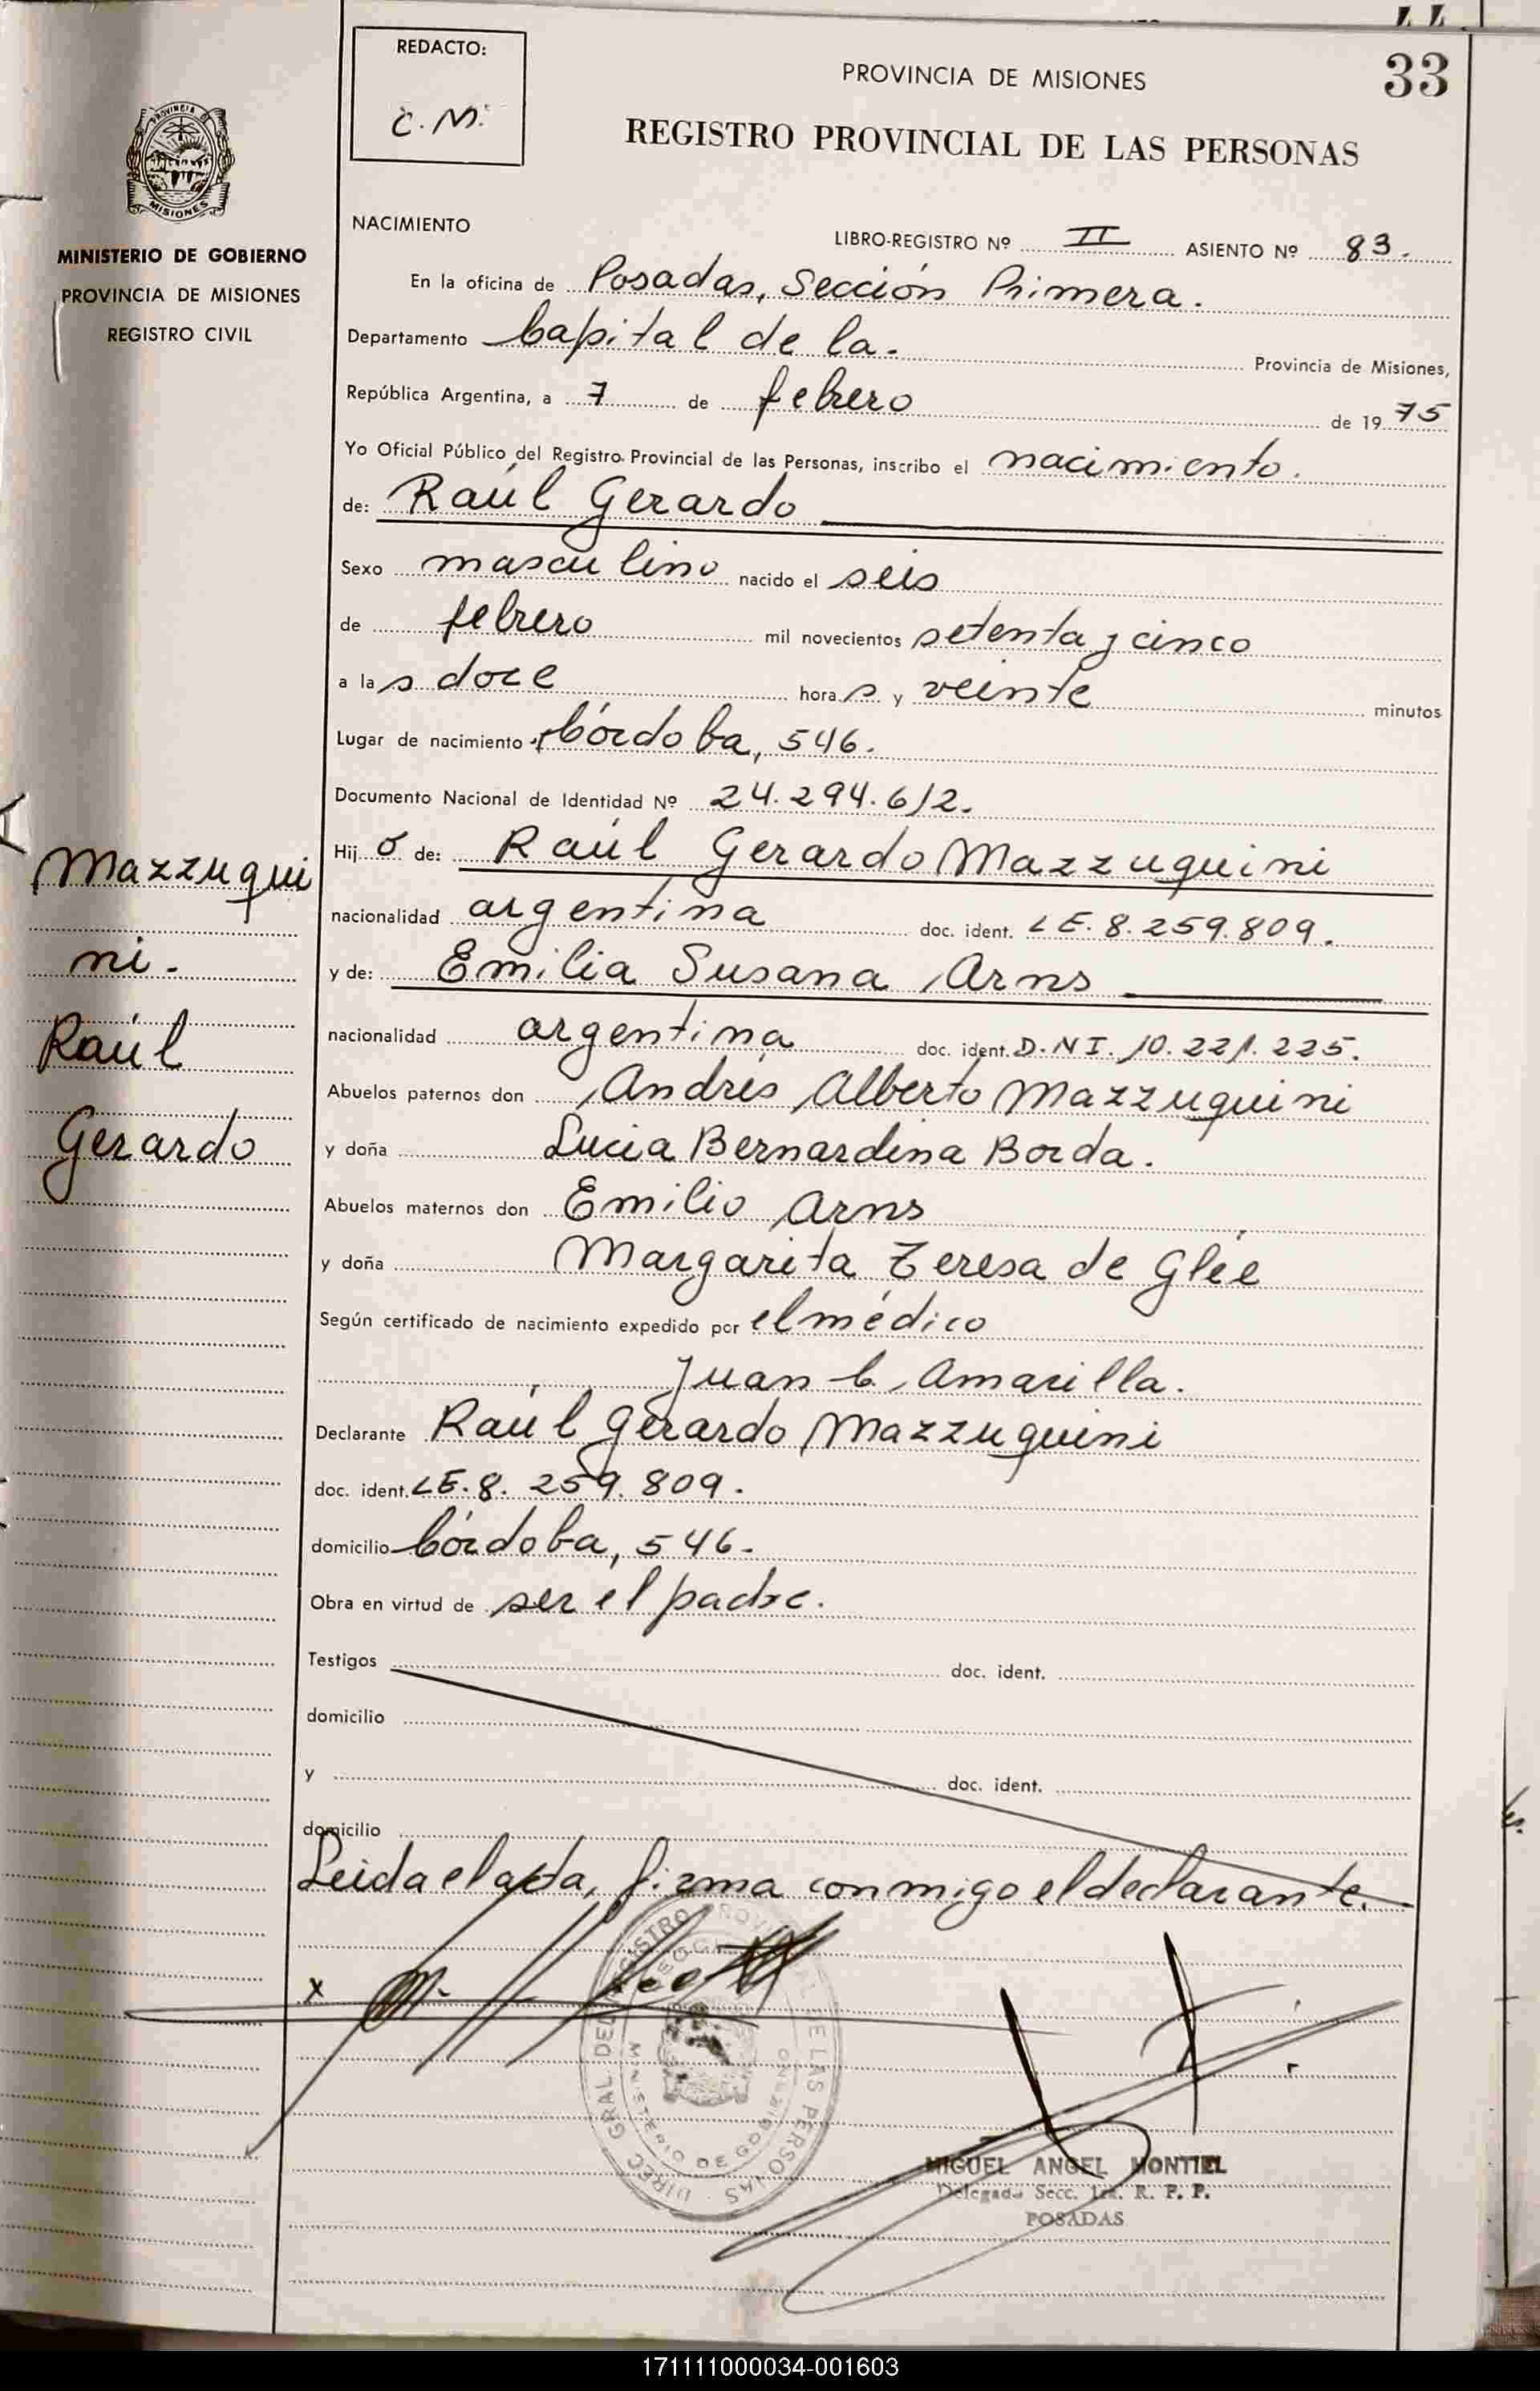 33
REDACTO:
C. M.
PROVINCIA DE MISIONES
REGISTRO PROVINCIAL DE LAS PERSONAS
PROVINCIA
MISIONES
MINISTERIO DE GOBIERNO
PROVINCIA DE MISIONES
REGISTRO CIVIL
NACIMIENTO
LIBRO-REGISTRO Nº II ASIENTO Nº 83.
En la oficina de Posadas, Sección Primera.
Departamento Capital de la. Provincia de Misiones,
República Argentina, a 7 de febrero de 1975
Yo Oficial Público del Registro Provincial de las Personas, inscribo el nacimiento.
de: Raúl Gerardo
Sexo masculino nacido el seis
de febrero mil novecientos setenta y cinco
a las doce horas y veinte minutos
Lugar de nacimiento Córdoba, 546.
Documento Nacional de Identidad Nº 24.294.612.
Hijo de: Raúl Gerardo Mazzuquini
nacionalidad argentina doc. ident. LE. 8.259.809.
y de: Emilia Susana Arns
nacionalidad argentina doc. ident. D.N I. 10.221.225.
Abuelos paternos don Andrés Alberto Mazzuquini
y doña Lucia Bernardina Borda.
Abuelos maternos don Emilio Arns
y doña Margarita Teresa de Glée
Según certificado de nacimiento expedido por el médico
Juan C. Amarilla.
Declarante Raúl Gerardo Mazzuquini
doc. ident. LE. 8. 259. 809.
domicilio Córdoba, 546.
Obra en virtud de ser el padre.
Testigos doc. ident.
domicilio
y doc. ident.
domicilio
Leida el acta, firma conmigo el declarante.
Mazzuqui
ni.
Raúl
Gerardo
x
DIREC. GRAL. DEL REGISTRO PROVINCIAL DE LAS PERSONAS
MINISTERIO DE GOBIERNO
MIGUEL ANGEL MONTIEL
Delegado Secc. 1ra. R. P. P.
POSADAS
171111000034-001603